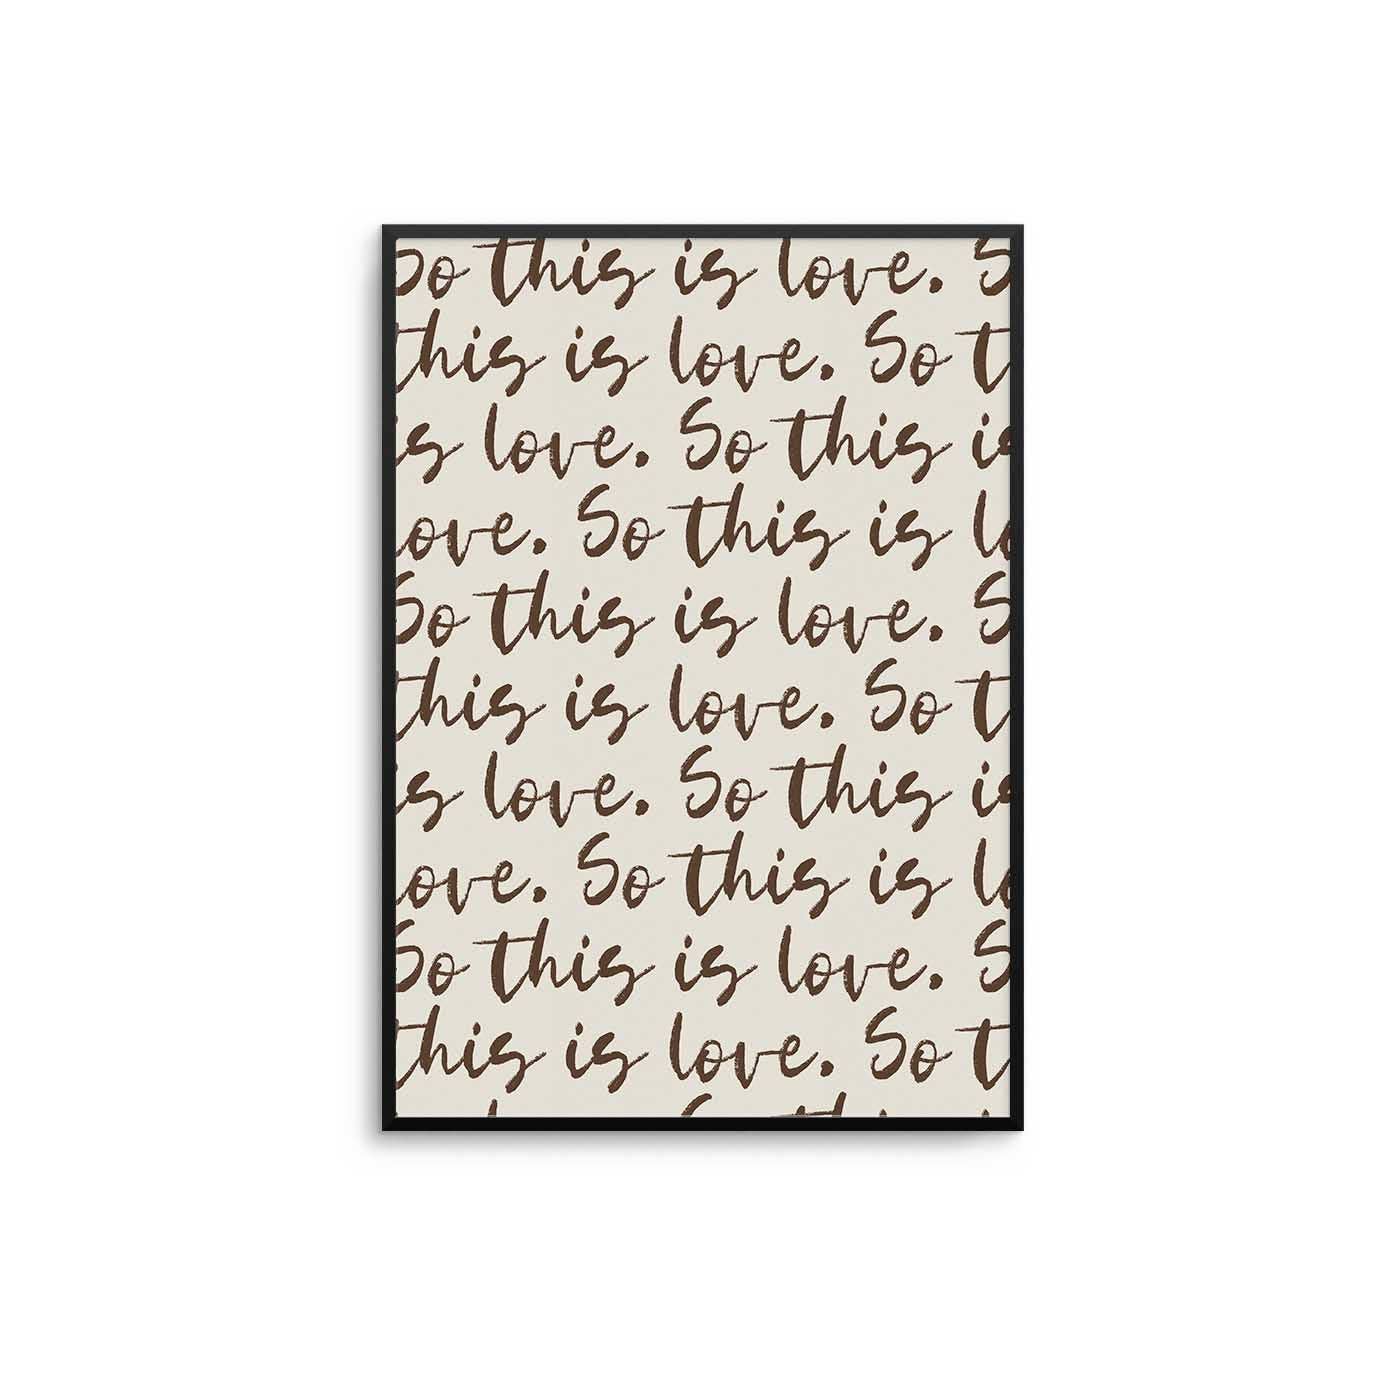 So this is love. S
this is love. So t
is love. So this is
love. So this is lo
So this is love. S
this is love. So t
is love. So this is
love. So this is lo
So this is love. S
this is love. So t